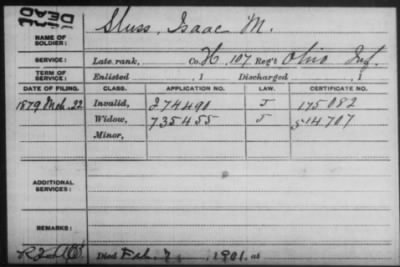 NAME OF SOLDIER: Sluss, Isaac M.
SERVICE: Late rank, Co. H, 107 Reg't Ohio Inf.
TERM OF SERVICE: Enlisted , 1 Discharged , 1
DATE OF FILING. CLASS. APPLICATION NO. LAW. CERTIFICATE NO.
1879 Mch. 22 Invalid, 274490 J 175082
Widow, 735455 J 514707
Minor,
ADDITIONAL SERVICES:
REMARKS:
Died Feb. 7 1901, at